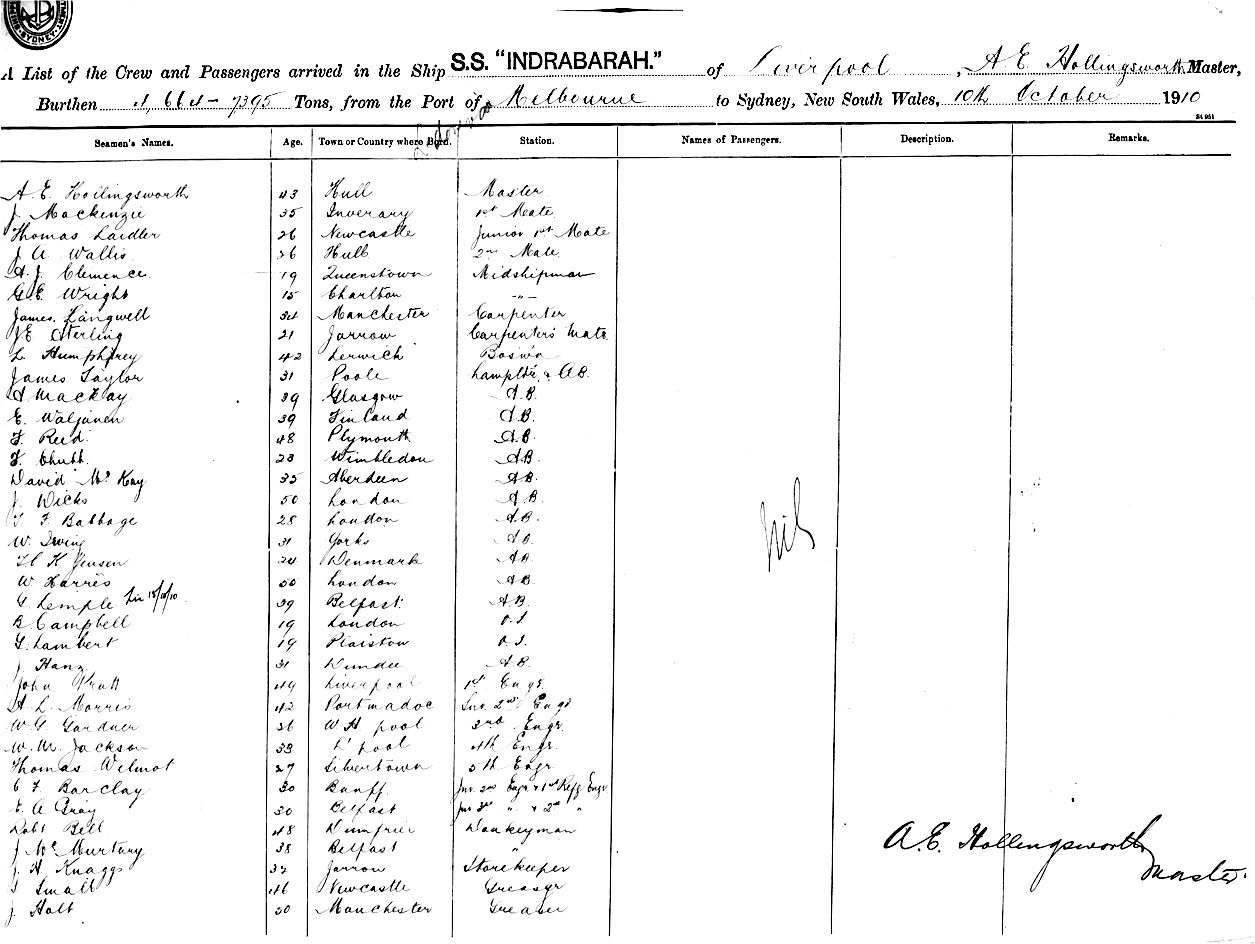 SYDNEY
A List of the Crew and Passengers arrived in the Ship S.S. "INDRABARAH." of Liverpool, A E Hollingsworth Master,
Burthen 4,664 - 7395 Tons, from the Port of Melbourne to Sydney, New South Wales, 10th October 1910
St 951
Seamen's Names. Age. Town or Country where Born. Station. Names of Passengers. Description. Remarks.
A. E. Hollingsworth 43 Hull Master
J. Mackenzie 35 Inverary 1st Mate
Thomas Laidler 26 Newcastle Junior 1st Mate
J A Wallis 26 Hull 2nd Mate
A. J. Clemence 19 Queenstown Midshipman
G. E. Wright 15 Charlton -"-
James Langwell 34 Manchester Carpenter
J E Sterling 21 Jarrow Carpenter's Mate
L Humphrey 42 Lerwick Bos'n
James Taylor 31 Poole Lamptr. & A.B.
A Mackay 39 Glasgow A.B.
E. Waljanen 39 Finland A.B.
F. Reed 48 Plymouth A.B.
F. Chubb 23 Wimbledon A.B.
David McKay 35 Aberdeen A.B.
J. Wicks 50 London A.B.
F Babbage 28 London A.B.
W. Irving 31 Yorks A B
H K Jensen 24 Denmark A.B.
W Harris 50 London A.B.
G Temple 18/10/10 39 Belfast A.B.
B Campbell 19 London O.S
G. Lambert 19 Plaistow O.S.
J. Hanz 31 Dundee A.B.
John Pratt 49 Liverpool 1st Engr
A L Morris 42 Portmadoc Snr. 2nd Engr
W G Gardner 36 W H pool 3rd Engr.
W. M. Jackson 33 L'pool 4th Engr.
Thomas Wilmot 27 Silvertown 5th Engr
C F Barclay 30 Banff Jnr. 2nd Engr & 1st Refg Engr
E. A Gray 30 Belfast Jnr 3rd " & 2nd "
Robt Bell 48 Dumfries Donkeyman
J McMurtary 38 Belfast "
J. H. Knaggs 32 Jarrow Storekeeper
Small 46 Newcastle Greaser
J. Holt 30 Manchester Greaser
Nil
A. E. Hollingsworth
Master.